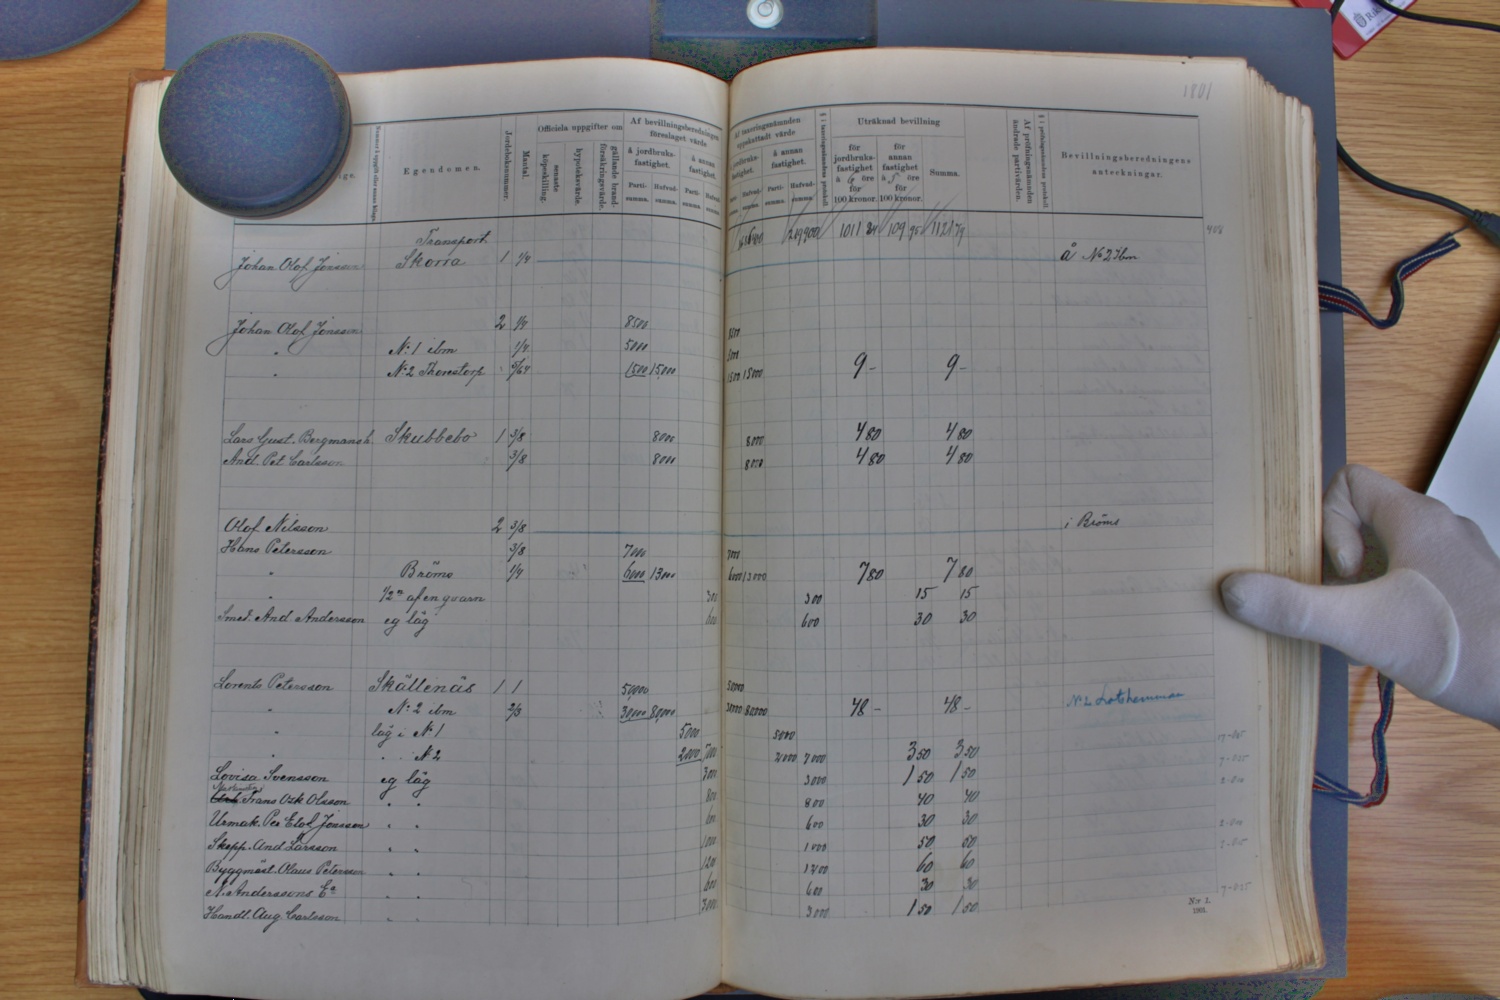 1801
Egendomen.
Jordeboksnummer.
Mantal.
Officiela uppgifter om
senaste köpeskilling.
hypoteksvärde.
gällande brandförsäkringsvärde.
Af bevillningsberedningen föreslaget värde
å jordbruksfastighet.
å annan fastighet
Partisumma.
Hufvudsumma.
Af taxeringsnämnden uppskattadt värde
å annan fastighet.
Partisumma.
Hufvudsumma.
Uträknad bevillning
för jordbruksfastighet à 6 öre för 100 kronor.
för annan fastighet à 5 öre för 100 kronor.
Summa.
Af pröfningsnämnden ändrade partivärden.
Bevillningsberedningens anteckningar.
Transport 219900 1011 84 109 95 1121 79
Johan Olof Jonsson Skorra 1 1/4 å No 2 Ibm
Johan Olof Jonsson 2 1/4 8500 8500
" No 1 ibm 1/4 5000 5000
" No 2 Thorstorp 5/64 1500 15000 1500 15000 9 - 9 -
Lars Gust. Bergman Skubbebo 1 3/8 8000 8000 4 80 4 80
And. Pet. Carlsson 3/8 8000 8000 4 80 4 80
Olof Nilsson 2 3/8 i Bröms
Hans Petersson 3/8 7000 7000
" Bröms 1/4 6000 13000 6000 13000 7 80 7 80
" af en qvarn 300 300 15 15
Smed. And Andersson eg läg 600 600 30 30
Lorents Petersson Skällenäs 1 1 50000 50000
" No 2 ibm 2/3 30000 80000 30000 80000 48 - 48 - No 2 Lotshemman
" läg i No 1 5000 5000
" " No 2 2000 7000 2000 7000 3 50 3 50
Lovisa Svensson eg läg 3000 3000 1 50 1 50
Frans Osk Olsson " " 800 800 40 40
Urmak. Per Elof Jonsson " " 600 600 30 30
Skepp. And Larsson " " 1000 1000 50 50
Byggmäst. Olaus Petersson " " 1200 1200 60 60
N. Anderssons Ea " " 600 600 30 30
Handl. Aug. Carlsson " " 3000 3000 1 50 1 50
N:r 1.
1901.